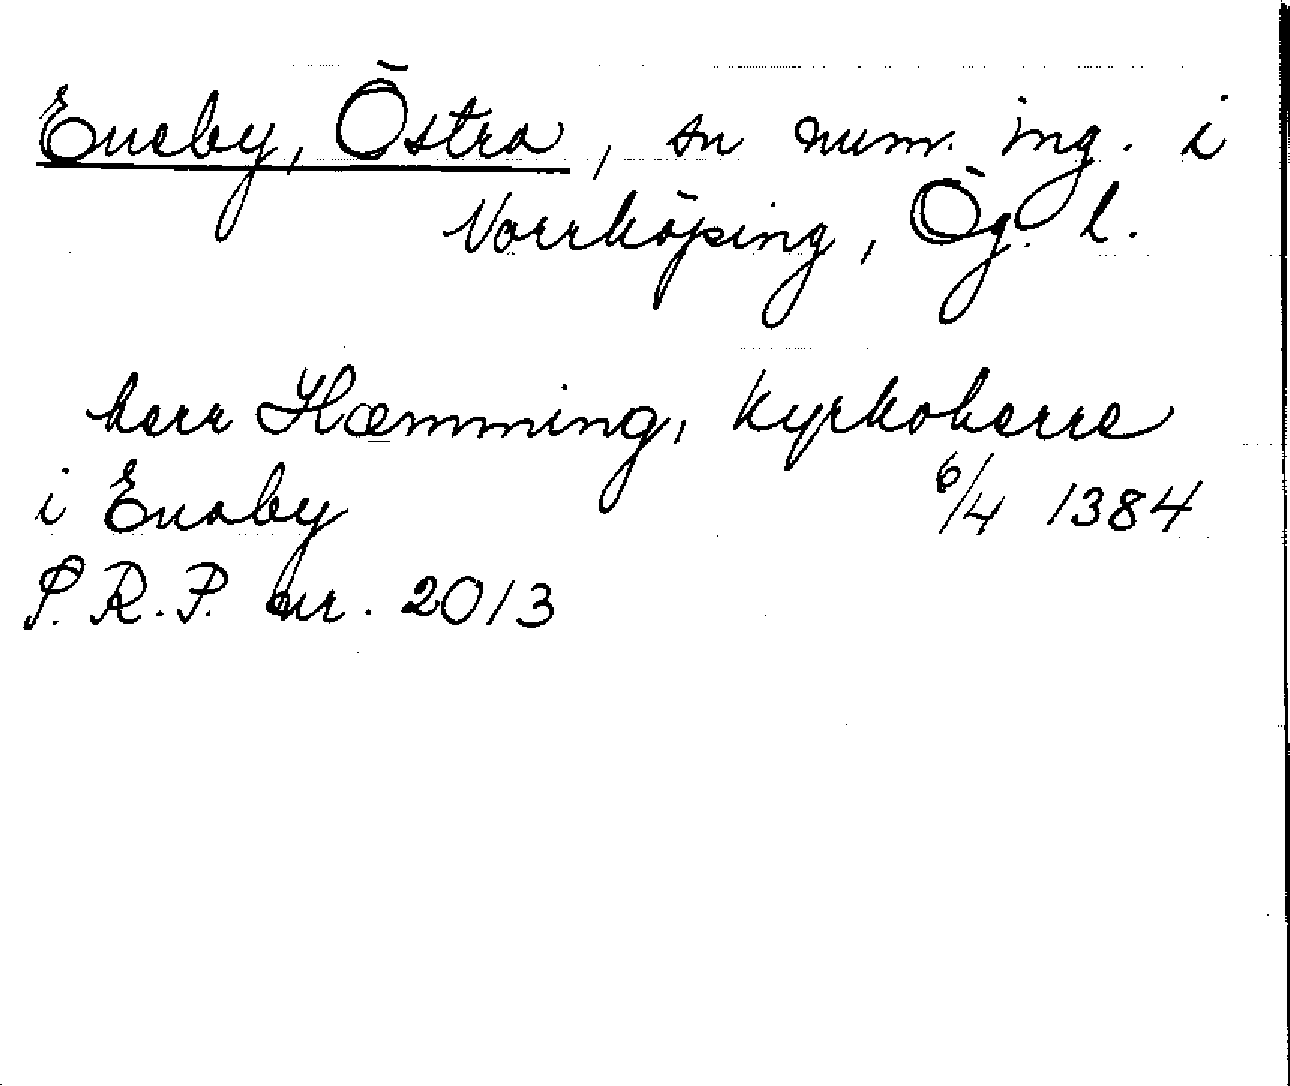 Eneby, Östra, sn num. ing. i
Norrköping, Ög. l.
herr Hæmming, kyrkoherre
i Enaby 6/4 1384
S.R.P. nr. 2013